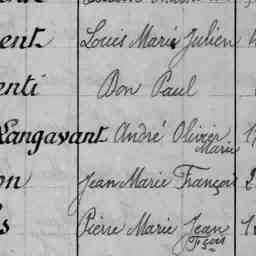 ent Louis Marie Julien
enti Don Paul
Langavant André Olivier
Marie
on Jean Marie François 2
ls Pierre Marie Jean 1
Fçois